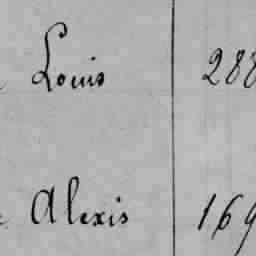 Louis 288
Alexis 169